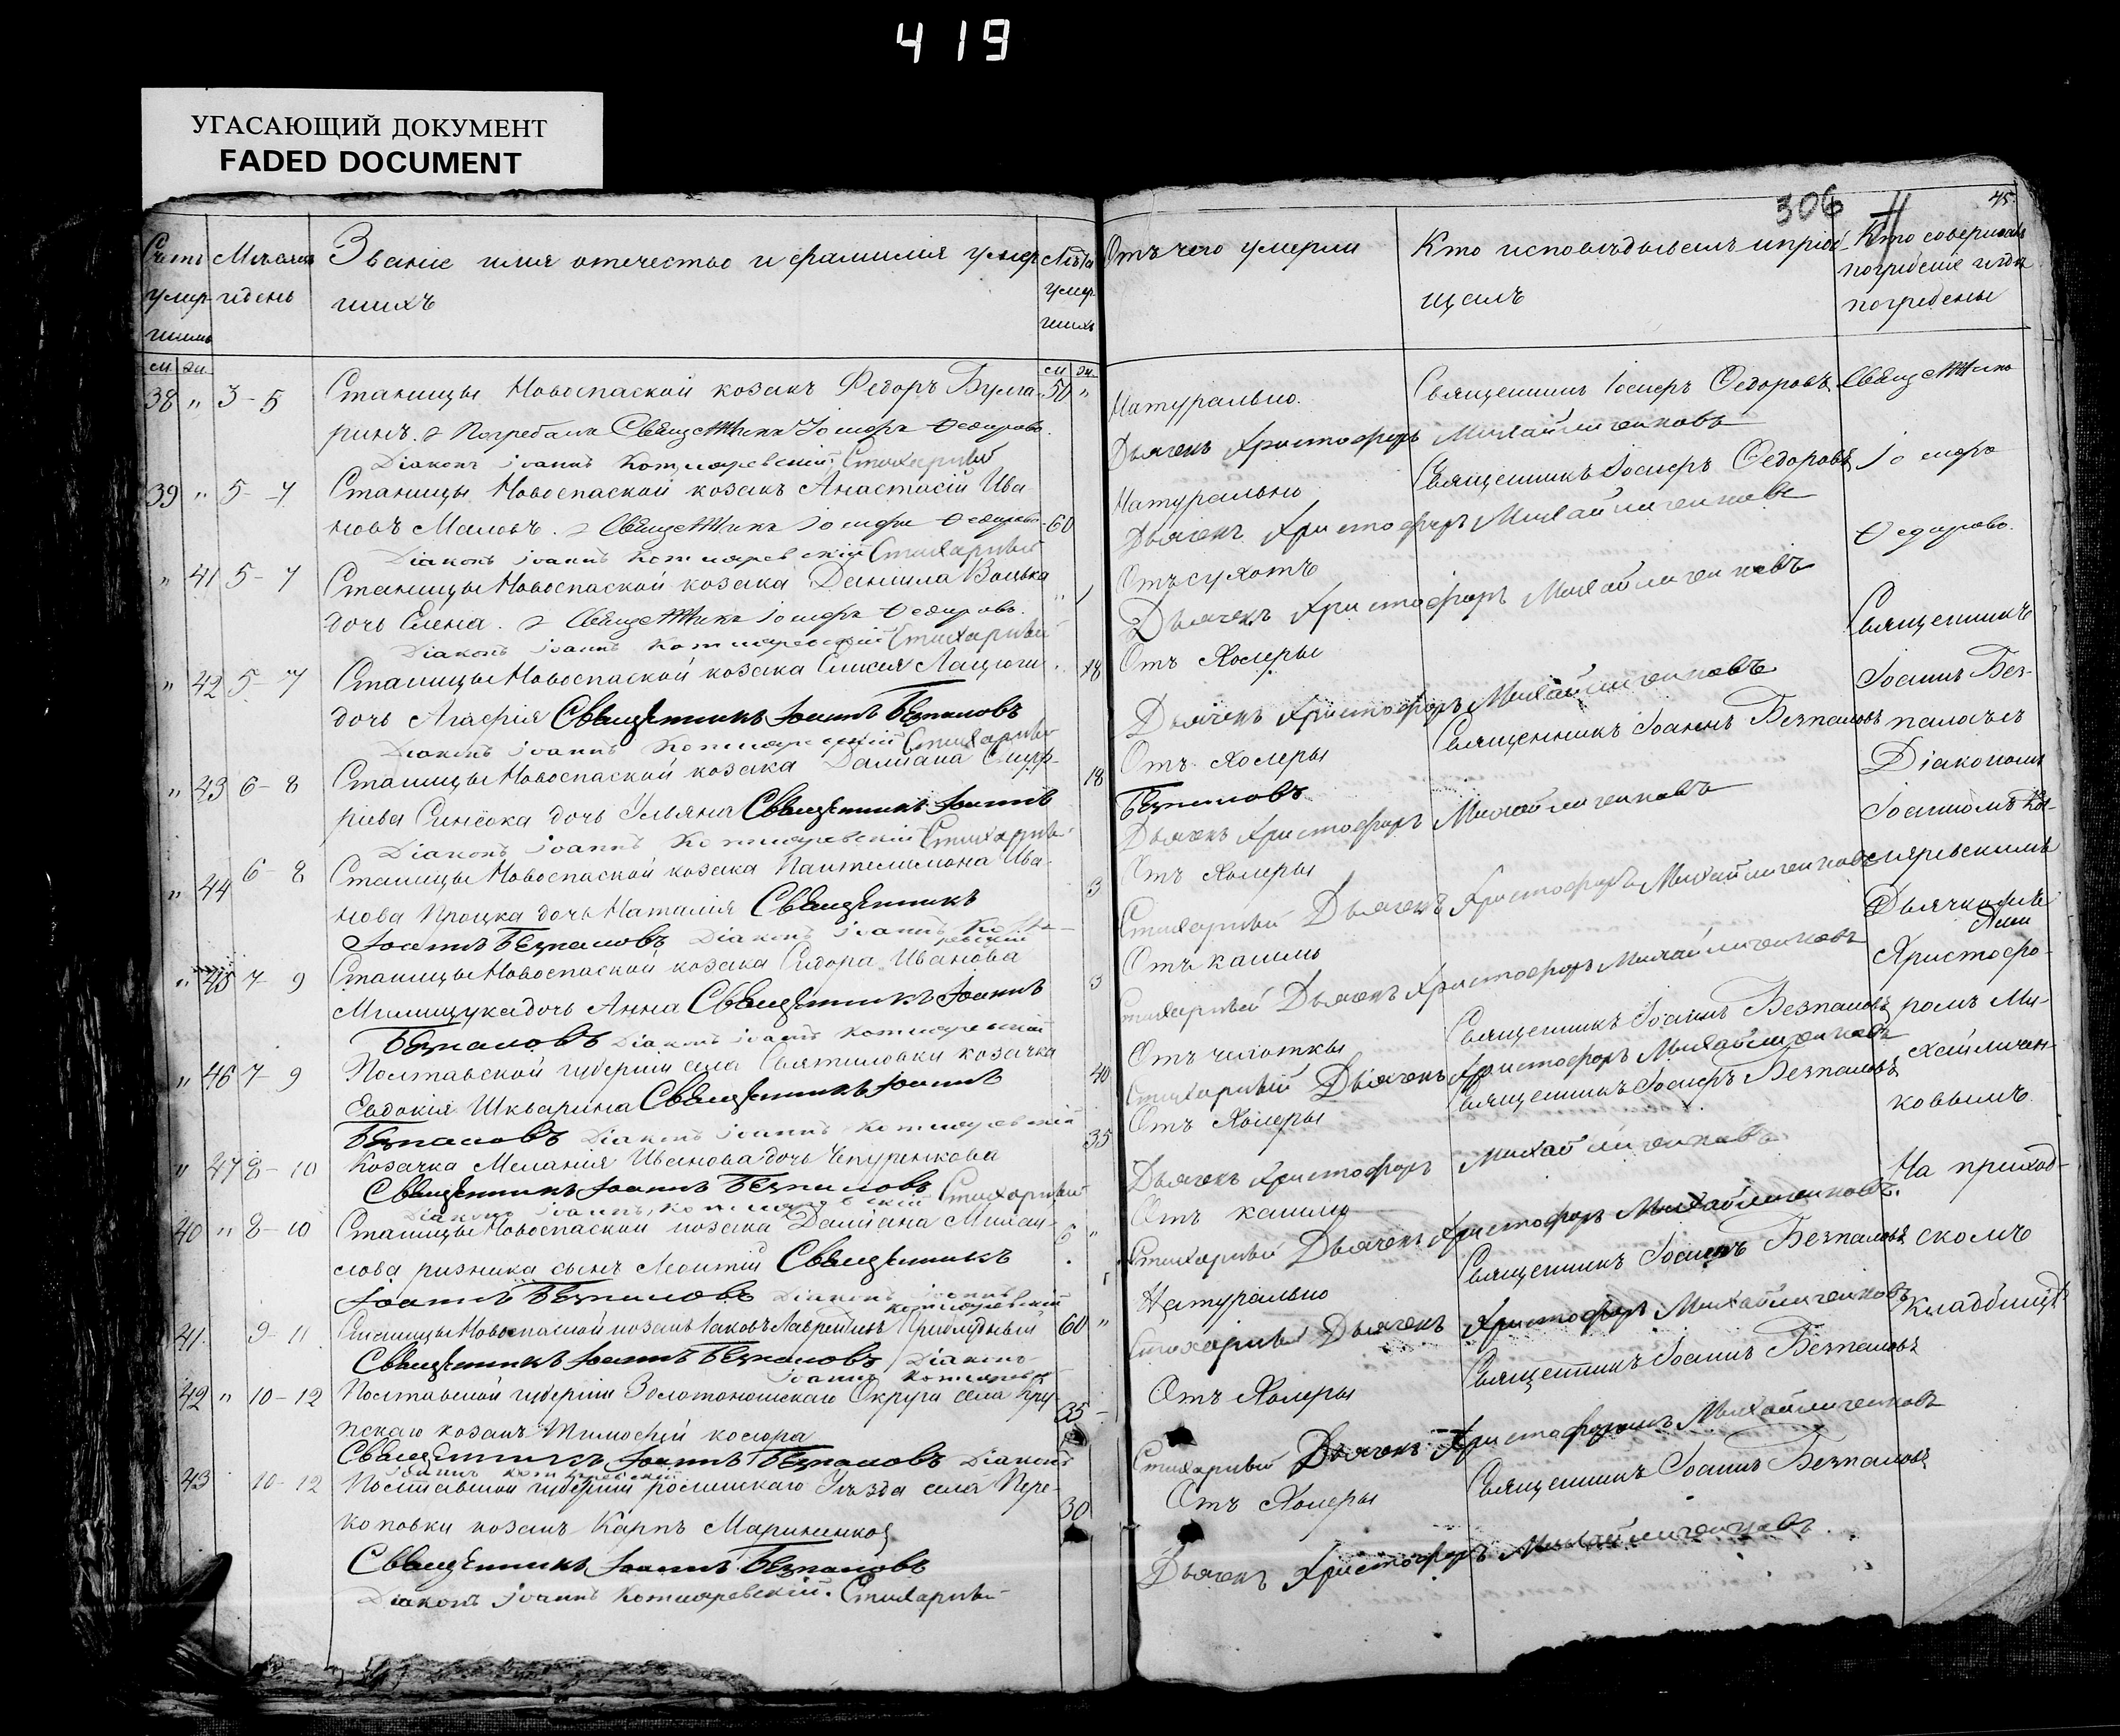 419
УГАСАЮЩИЙ ДОКУМЕНТ
FADED DOCUMENT
306
45
Счетъ умер-шимъ
Мѣсяцъ и день
Званіе имя отечество и фамилія умер-
шихъ
Лѣта умер-шихъ
Отъ чего умерли
Кто исповѣдывалъ и пріоб-
щалъ
Кто совершалъ
погребеніе и гдѣ
погребены
38 " 3-5 Станицы Новоспаской козакъ Федоръ Булга- 50 "
ринъ. Погребалъ Священникъ Іосифъ Федоровъ.
Діаконъ Іоаннъ Котляревскій Стихарный
39 " 5-7 Станицы Новоспаской козакъ Анастасій Ива-
новъ Маловъ. Священникъ Іосифъ Федоровъ 60
Діаконъ Іоаннъ Котляревскій Стихарный
" 41 5-7 Станицы Новоспаской козака Данила Воцька " 1
дочь Елена. Священникъ Іосифъ Федоровъ.
Діаконъ Іоаннъ Котляревскій Стихарный
" 42 5-7 Станицы Новоспаской козака 18
дочь Агафія Священникъ Іоаннъ Безпаловъ
Діаконъ Іоаннъ Котляревскій Стихарный
" 43 6-8 Станицы Новоспаской козака Даміана 18
дочь Ульяна Священникъ Іоаннъ
Діаконъ Іоаннъ Котляревскій Стихарный
" 44 6-8 Станицы Новоспаской козака Пантелимона Ива- 3
нова Процка дочь Наталія Священникъ
Іоаннъ Безпаловъ Діаконъ Іоаннъ Котляревскій
" 45 7-9 Станицы Новоспаской козака Сидора Иванова 3
дочь Анна Священникъ Іоаннъ
Безпаловъ Діаконъ Іоаннъ Котляревскій
" 46 7-9 Полтавской губерніи села Святиловки козачка 40
Евдокія Шкварина Священникъ Іоаннъ
Безпаловъ Діаконъ Іоаннъ Котляревскій
" 47 8-10 Козачка Меланія Иванова дочь Чепурнкова 35
Священникъ Іоаннъ Безпаловъ
Діаконъ Іоаннъ Котляревскій Стихарный
40 " 8-10 Станицы Новоспаской козака Даміана Михай- "
лова ризника сынъ Леонтій Священникъ
Іоаннъ Безпаловъ Діаконъ Іоаннъ
Котляревскій
41. 9-11 Станицы Новоспаской козакъ Іаковъ Лаврентіевъ Приблудный 60 "
Священникъ Іоаннъ Безпаловъ Діаконъ
Іоаннъ Котляревскій
42 " 10-12 Полтавской губерніи Золотоношскаго Округа села Кру- 35
пскаго козакъ Тимофей косюра
Священникъ Іоаннъ Безпаловъ Діаконъ
Іоаннъ Котляревскій
43 10-12 Полтавской губерніи Уѣзда села Пере- 30
коповки козакъ Карпъ Мариненко
Священникъ Іоаннъ Безпаловъ
Діаконъ Іоаннъ Котляревскій. Стихарный
Натурально. Священникъ Іосифъ Федоровъ
Дьячекъ Христофоръ Михайличенковъ
Натурально Священникъ Іосифъ Федоровъ
Дьячекъ Христофоръ Михайличенковъ
Отъ сухотъ
Дьячекъ Христофоръ Михайличенковъ
Отъ Холеры
Дьячекъ Христофоръ Михайличенковъ
Отъ Холеры Священникъ Іоаннъ Безпаловъ
Безпаловъ
Дьячекъ Христофоръ Михайличенковъ
Отъ Холеры
Стихарный Дьячекъ Христофоръ Михайличенковъ
Отъ кашлю
Стихарный Дьячекъ Христофоръ Михайличенковъ
Отъ чихотки Священникъ Іоаннъ Безпаловъ
Стихарный Дьячекъ Христофоръ Михайличенковъ
Отъ Холеры Священникъ Безпаловъ
Дьячекъ Христофоръ Михайличенковъ
Отъ кашлю
Стихарный Дьячекъ Христофоръ Михайличенковъ.
Натурально Священникъ Іоаннъ Безпаловъ
Стихарный Дьячекъ Христофоръ Михайличенковъ
Отъ Холеры Священникъ Іоаннъ Безпаловъ
Стихарный Дьячекъ Христофоръ Михайличенковъ
Отъ Холеры Священникъ Іоаннъ Безпаловъ
Дьячекъ Христофоръ Михайличенковъ.
Священникъ
Іосифъ
Федоровъ.
Священникъ
Іоаннъ Без-
паловъ съ
Діакономъ
Іоанномъ Кот-
ляревскимъ
Дьячкомъ
Христофо-
ромъ Ми-
хайличен-
ковымъ
На приход-
скомъ
кладбищѣ